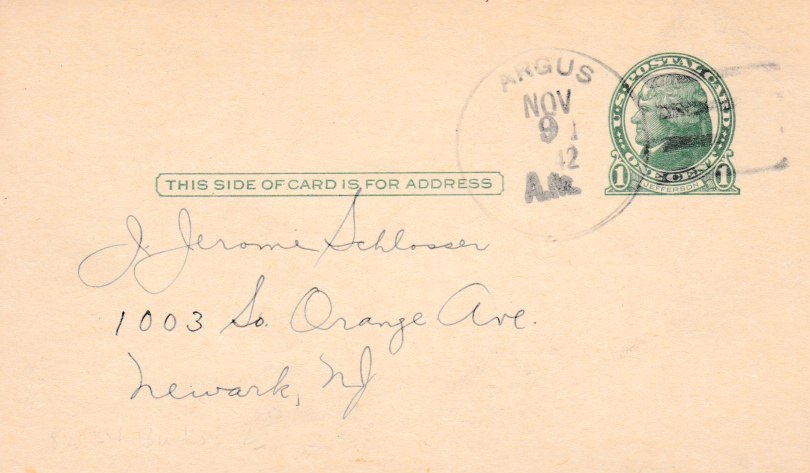 ARGUS
NOV
9 1
42
A.M.
U.S. POSTAL CARD
ONE CENT
1 JEFFERSON 1
THIS SIDE OF CARD IS FOR ADDRESS
J Jerome Schlosser
1003 So. Orange Ave.
Newark, NJ